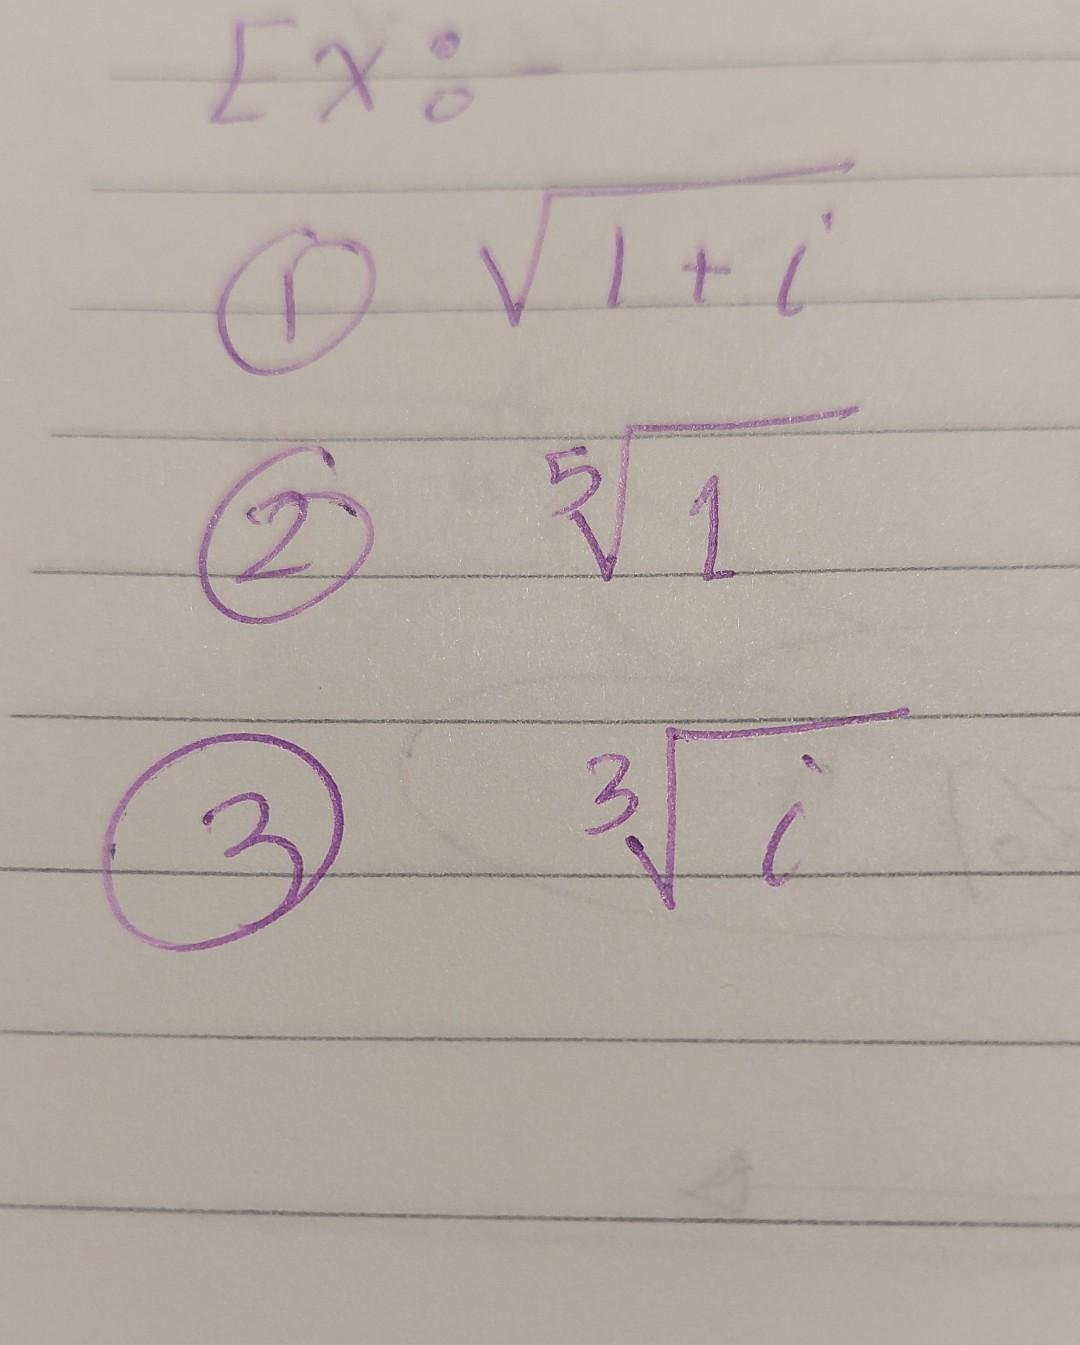 Ex:-
① √1+i
② ⁵√1
③ ³√i